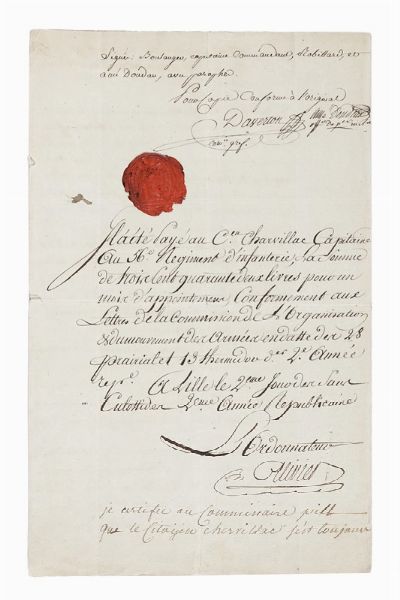 Signé: Boulanger, capitaine Commandant, Robillard, et
aimé Doudan, avec paraphe.
Pour Copie Conforme à l'original
Daverton
Il a été payé au C.en Charvillac Capitaine
Au 56.e Regiment d'infanterie, La Somme
de trois Cent quarante deux livres pour un
mois d'appointemens Conformement aux
Lettres de la Commission de L'Organisation
& du mouvement des Armées en datte des 28
prairial et 13 thermidor d.er 2.e Année
rep.e A Lille le 2.eme Jour des Sans
Culottides 2.eme Année Republicaine
L'Ordonnateur
Olivier
je certifie au Commissaire
que le Citoyen Chervillac s'est toujours